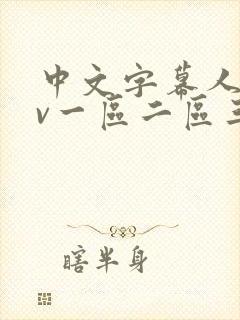 中文字幕人
v一區二區三
瞎半身